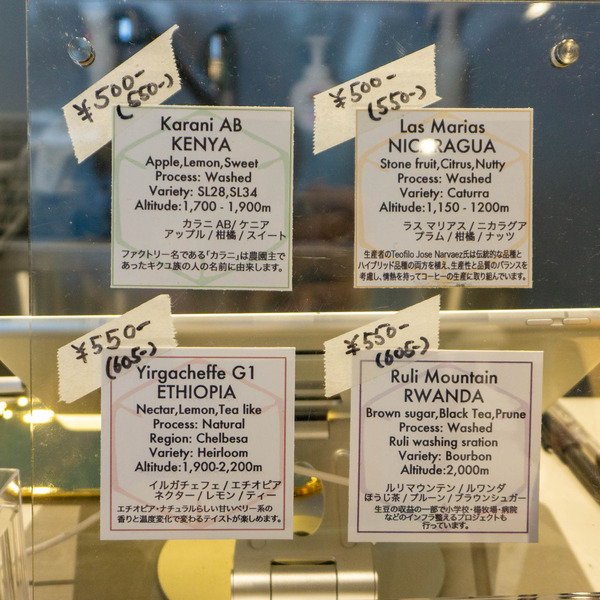 ¥500-
(550-)
Karani AB
KENYA
Apple,Lemon,Sweet
Process: Washed
Variety: SL28,SL34
Altitude:1,700 - 1,900m
カラニ AB/ ケニア
アップル / 柑橘 / スイート
ファクトリー名である「カラニ」は農園主で
あったキクユ族の人の名前に由来します。
¥500-
(550-)
Las Marias
NICARAGUA
Stone fruit,Citrus,Nutty
Process: Washed
Variety: Caturra
Altitude:1,150 - 1200m
ラス マリアス / ニカラグア
プラム / 柑橘 / ナッツ
生産者のTeofilo Jose Narvaez氏は伝統的な品種と
ハイブリッド品種の両方を植え、生産性と品質のバランスを
考慮し、情熱を持ってコーヒーの生産に取り組んでいます。
¥550-
(605-)
Yirgacheffe G1
ETHIOPIA
Nectar,Lemon,Tea like
Process: Natural
Region: Chelbesa
Variety: Heirloom
Altitude:1,900-2,200m
イルガチェフェ / エチオピア
ネクター / レモン / ティー
エチオピア・ナチュラルらしい甘いベリー系の
香りと温度変化で変わるテイストが楽しめます。
¥550-
(605-)
Ruli Mountain
RWANDA
Brown sugar,Black Tea,Prune
Process: Washed
Ruli washing sration
Variety: Bourbon
Altitude:2,000m
ルリマウンテン / ルワンダ
ほうじ茶 / プルーン / ブラウンシュガー
生豆の収益の一部で小学校・牧場・病院
などのインフラ整えるプロジェクトも
行っています。